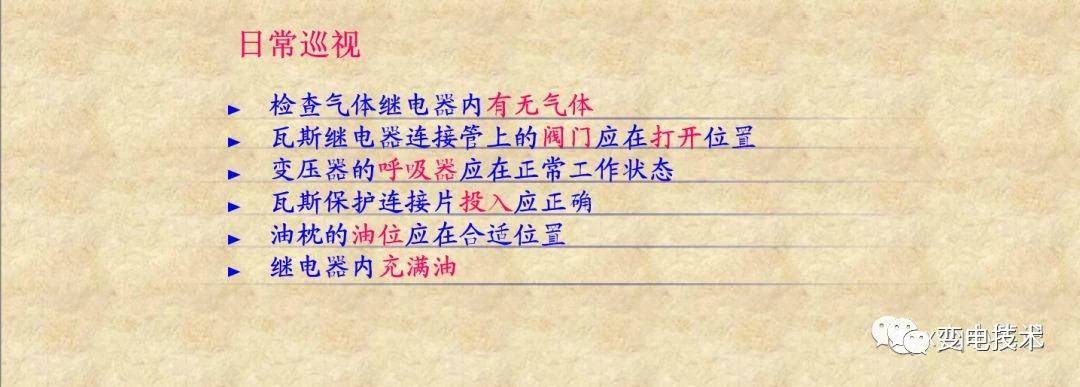 日常巡视
► 检查气体继电器内有无气体
► 瓦斯继电器连接管上的阀门应在打开位置
► 变压器的呼吸器应在正常工作状态
► 瓦斯保护连接片投入应正确
► 油枕的油位应在合适位置
► 继电器内充满油
变电技术